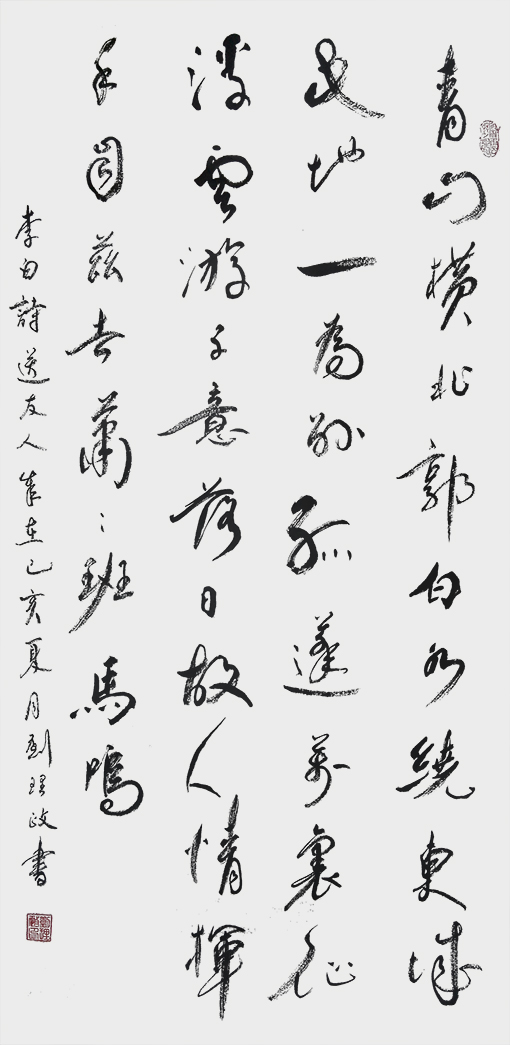 青山橫北郭白水繞東城
此地一為別孤蓬萬裏征
浮雲游子意落日故人情揮
手自茲去蕭〻班馬鳴
李白詩送友人歲在己亥夏月劉理政書